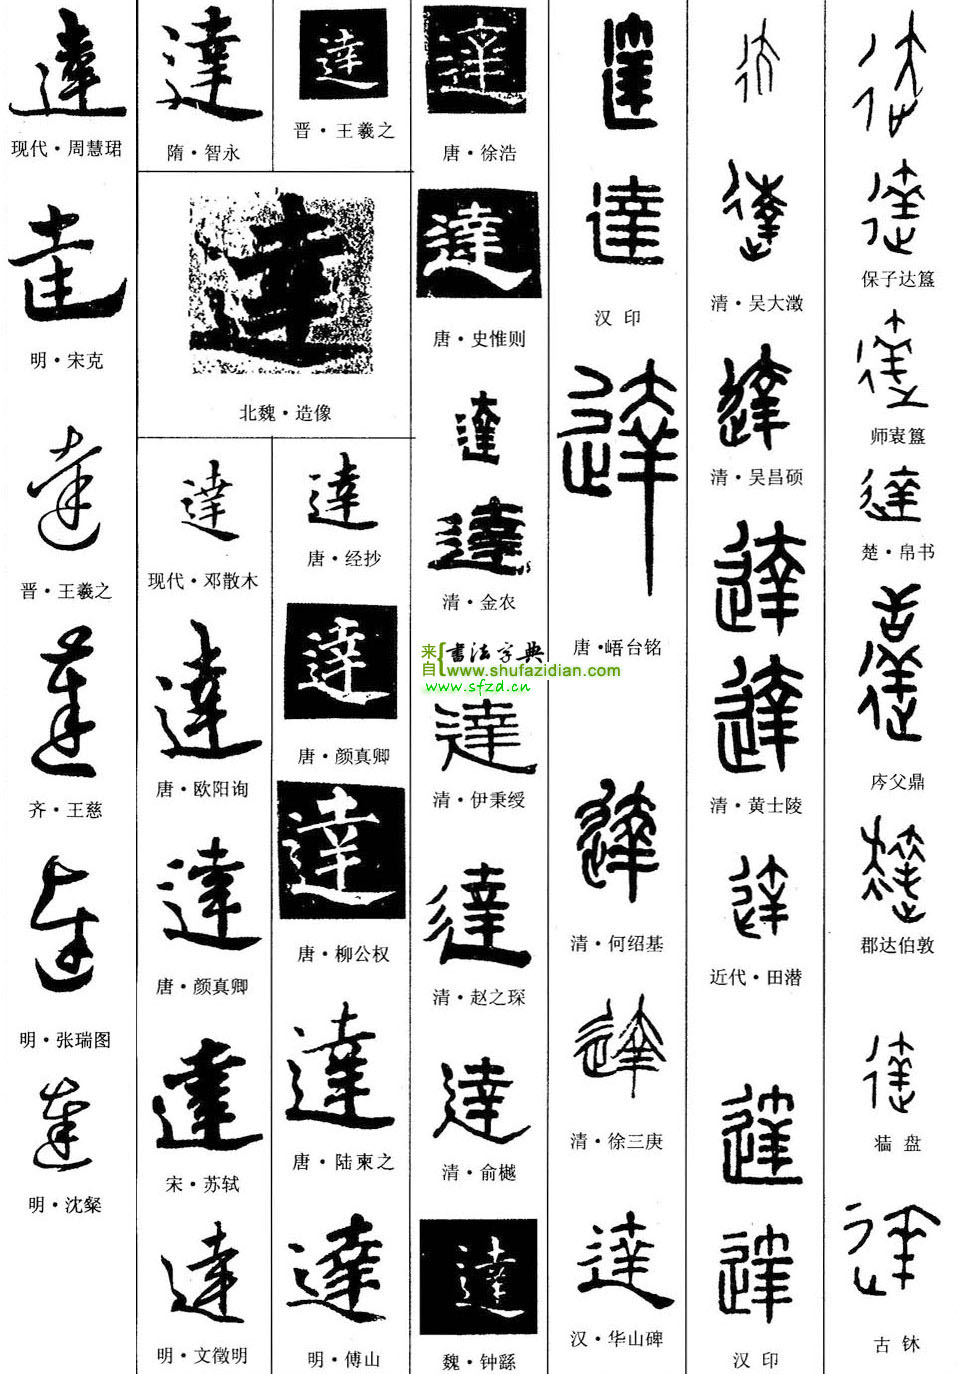 達
现代·周慧珺
達
明·宋克
達
晋·王羲之
達
齐·王慈
達
明·张瑞图
達
明·沈粲
達
隋·智永
達
北魏·造像
達
现代·邓散木
達
唐·欧阳询
達
唐·颜真卿
達
宋·苏轼
達
明·文徵明
達
晋·王羲之
達
唐·经抄
達
唐·颜真卿
達
唐·柳公权
達
唐·陆柬之
達
明·傅山
達
唐·徐浩
達
唐·史惟则
達
達
清·金农
来自{書法字典
www.shufazidian.com
www.sfzd.cn
達
清·伊秉绶
達
清·赵之琛
達
清·俞樾
達
魏·钟繇
達
達
汉 印
達
唐·峿台铭
達
清·何绍基
達
清·徐三庚
達
汉·华山碑
達
清·吴大澂
達
清·吴昌硕
達
達
清·黄士陵
達
近代·田潜
達
達
汉 印
達
保子达簋
達
师袁簋
達
楚·帛书
達
父鼎
達
郡达伯敦
達
盘
達
古 钵